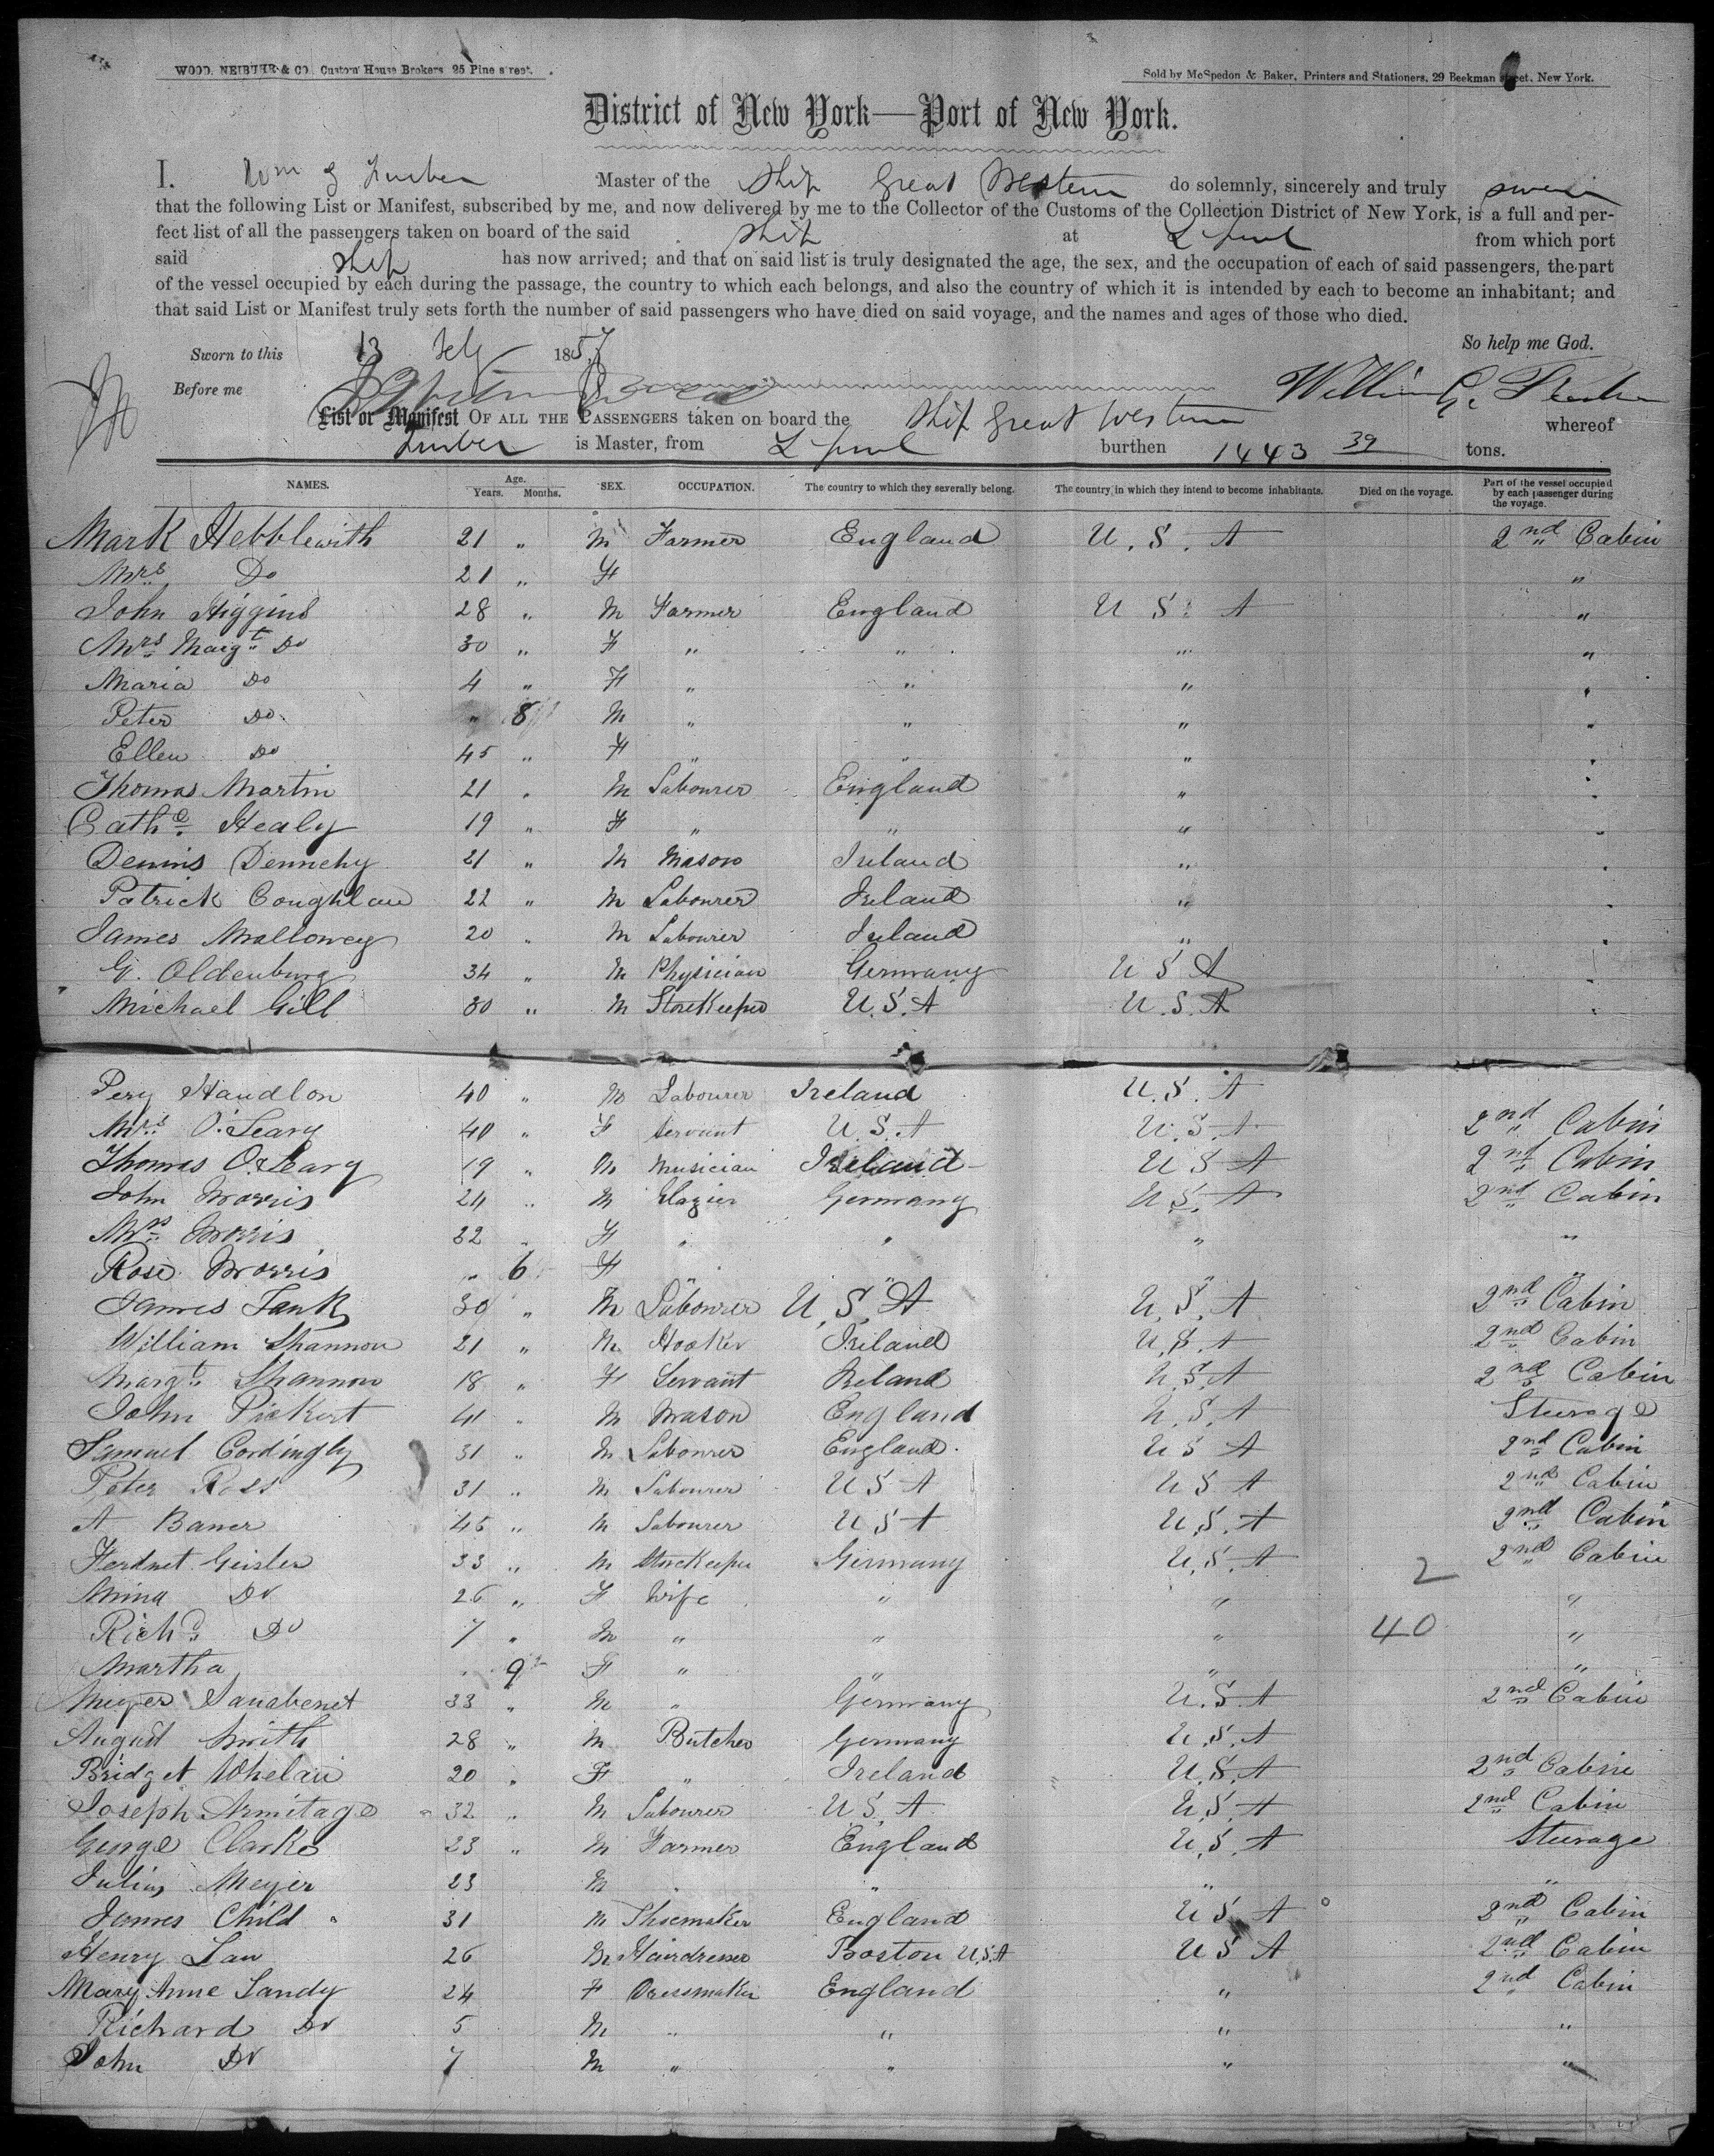 WOOD, NEIBUHR & CO. Custom House Brokers 25 Pine street.
Sold by McSpedon & Baker, Printers and Stationers, 29 Beekman street, New York.
District of New York—Port of New York.
I, Wm G Furber Master of the Ship Great Western do solemnly, sincerely and truly swear
that the following List or Manifest, subscribed by me, and now delivered by me to the Collector of the Customs of the Collection District of New York, is a full and per-
fect list of all the passengers taken on board of the said Ship at L'pool from which port
said Ship has now arrived; and that on said list is truly designated the age, the sex, and the occupation of each of said passengers, the part
of the vessel occupied by each during the passage, the country to which each belongs, and also the country of which it is intended by each to become an inhabitant; and
that said List or Manifest truly sets forth the number of said passengers who have died on said voyage, and the names and ages of those who died.
Sworn to this 13 Feby 1857 So help me God.
Before me William G. Furber
List or Manifest OF ALL THE PASSENGERS taken on board the Ship Great Western whereof
Furber is Master, from L'pool burthen 1443 39 tons.
NAMES. Age. Years. Months. SEX. OCCUPATION. The country to which they severally belong. The country in which they intend to become inhabitants. Died on the voyage. Part of the vessel occupied by each passenger during the voyage.
Mark Hebblewith 21 " M Farmer England U.S.A 2nd Cabin
Mrs Do 21 " F "
John Higgins 28 " M Farmer England U S A "
Mrs Margt Do 30 " F " " " "
Maria Do 4 " F " " " "
Peter Do " 8 M " " " "
Ellen Do 45 " F " " " "
Thomas Martin 21 " M Labourer England " "
Cathe Healy 19 " F " " " "
Dennis Dennehy 21 " M Mason Ireland " "
Patrick Coughlan 22 " M Labourer Ireland " "
James Mallowey 20 " M Labourer Ireland " "
G. Oldenburg 34 " M Physician Germany U S A "
Michael Gill 30 " M StoreKeeper U.S.A U.S.A "
Pery Handlon 40 " M Labourer Ireland U.S.A
Mrs O'Leary 40 " F Servant U.S.A U.S.A 2nd Cabin
Thomas O'Leary 19 " M Musician Ireland U S A 2nd Cabin
John Morris 24 " M Glazier Germany U.S.A 2nd Cabin
Mrs Morris 22 " F " " " "
Rose Morris " 6 F " " " "
James Tank 30 " M Labourer U.S.A U.S.A 2nd Cabin
William Shannon 21 " M Hooker Ireland U.S.A 2nd Cabin
Margt Shannon 18 " F Servant Ireland U.S.A 2nd Cabin
John Pickert 41 " M Mason England U.S.A Steerage
Samuel Cordingly 31 " M Labourer England U S A 2nd Cabin
Peter Ross 31 " M Labourer U S A U S A 2nd Cabin
A Baner 45 " M Labourer U S A U.S.A 2nd Cabin
Ferdnet Geisler 33 " M StoreKeeper Germany U.S.A 2nd Cabin
2
Mina Do 26 " F Wife " " "
Richd Do 7 " M " " " 40 "
Martha 9 F " " " "
Meyer 33 " M " Germany U.S.A 2nd Cabin
August Smith 28 " M Butcher Germany U.S.A
Bridget Whelan 20 " F " Ireland U.S.A 2nd Cabin
Joseph Armitage 32 " M Labourer U S A U.S.A 2nd Cabin
George Clarke 23 " M Farmer England U.S.A Steerage
Julius Meyer 23 M " " " "
James Child 31 M Shoemaker England U S A 2nd Cabin
Henry Law 26 M Hairdresser Boston U.S.A U S A 2nd Cabin
Mary Anne Landy 24 F Dressmaker England " 2nd Cabin
Richard Do 5 M " " " "
John Do 7 M " " " "